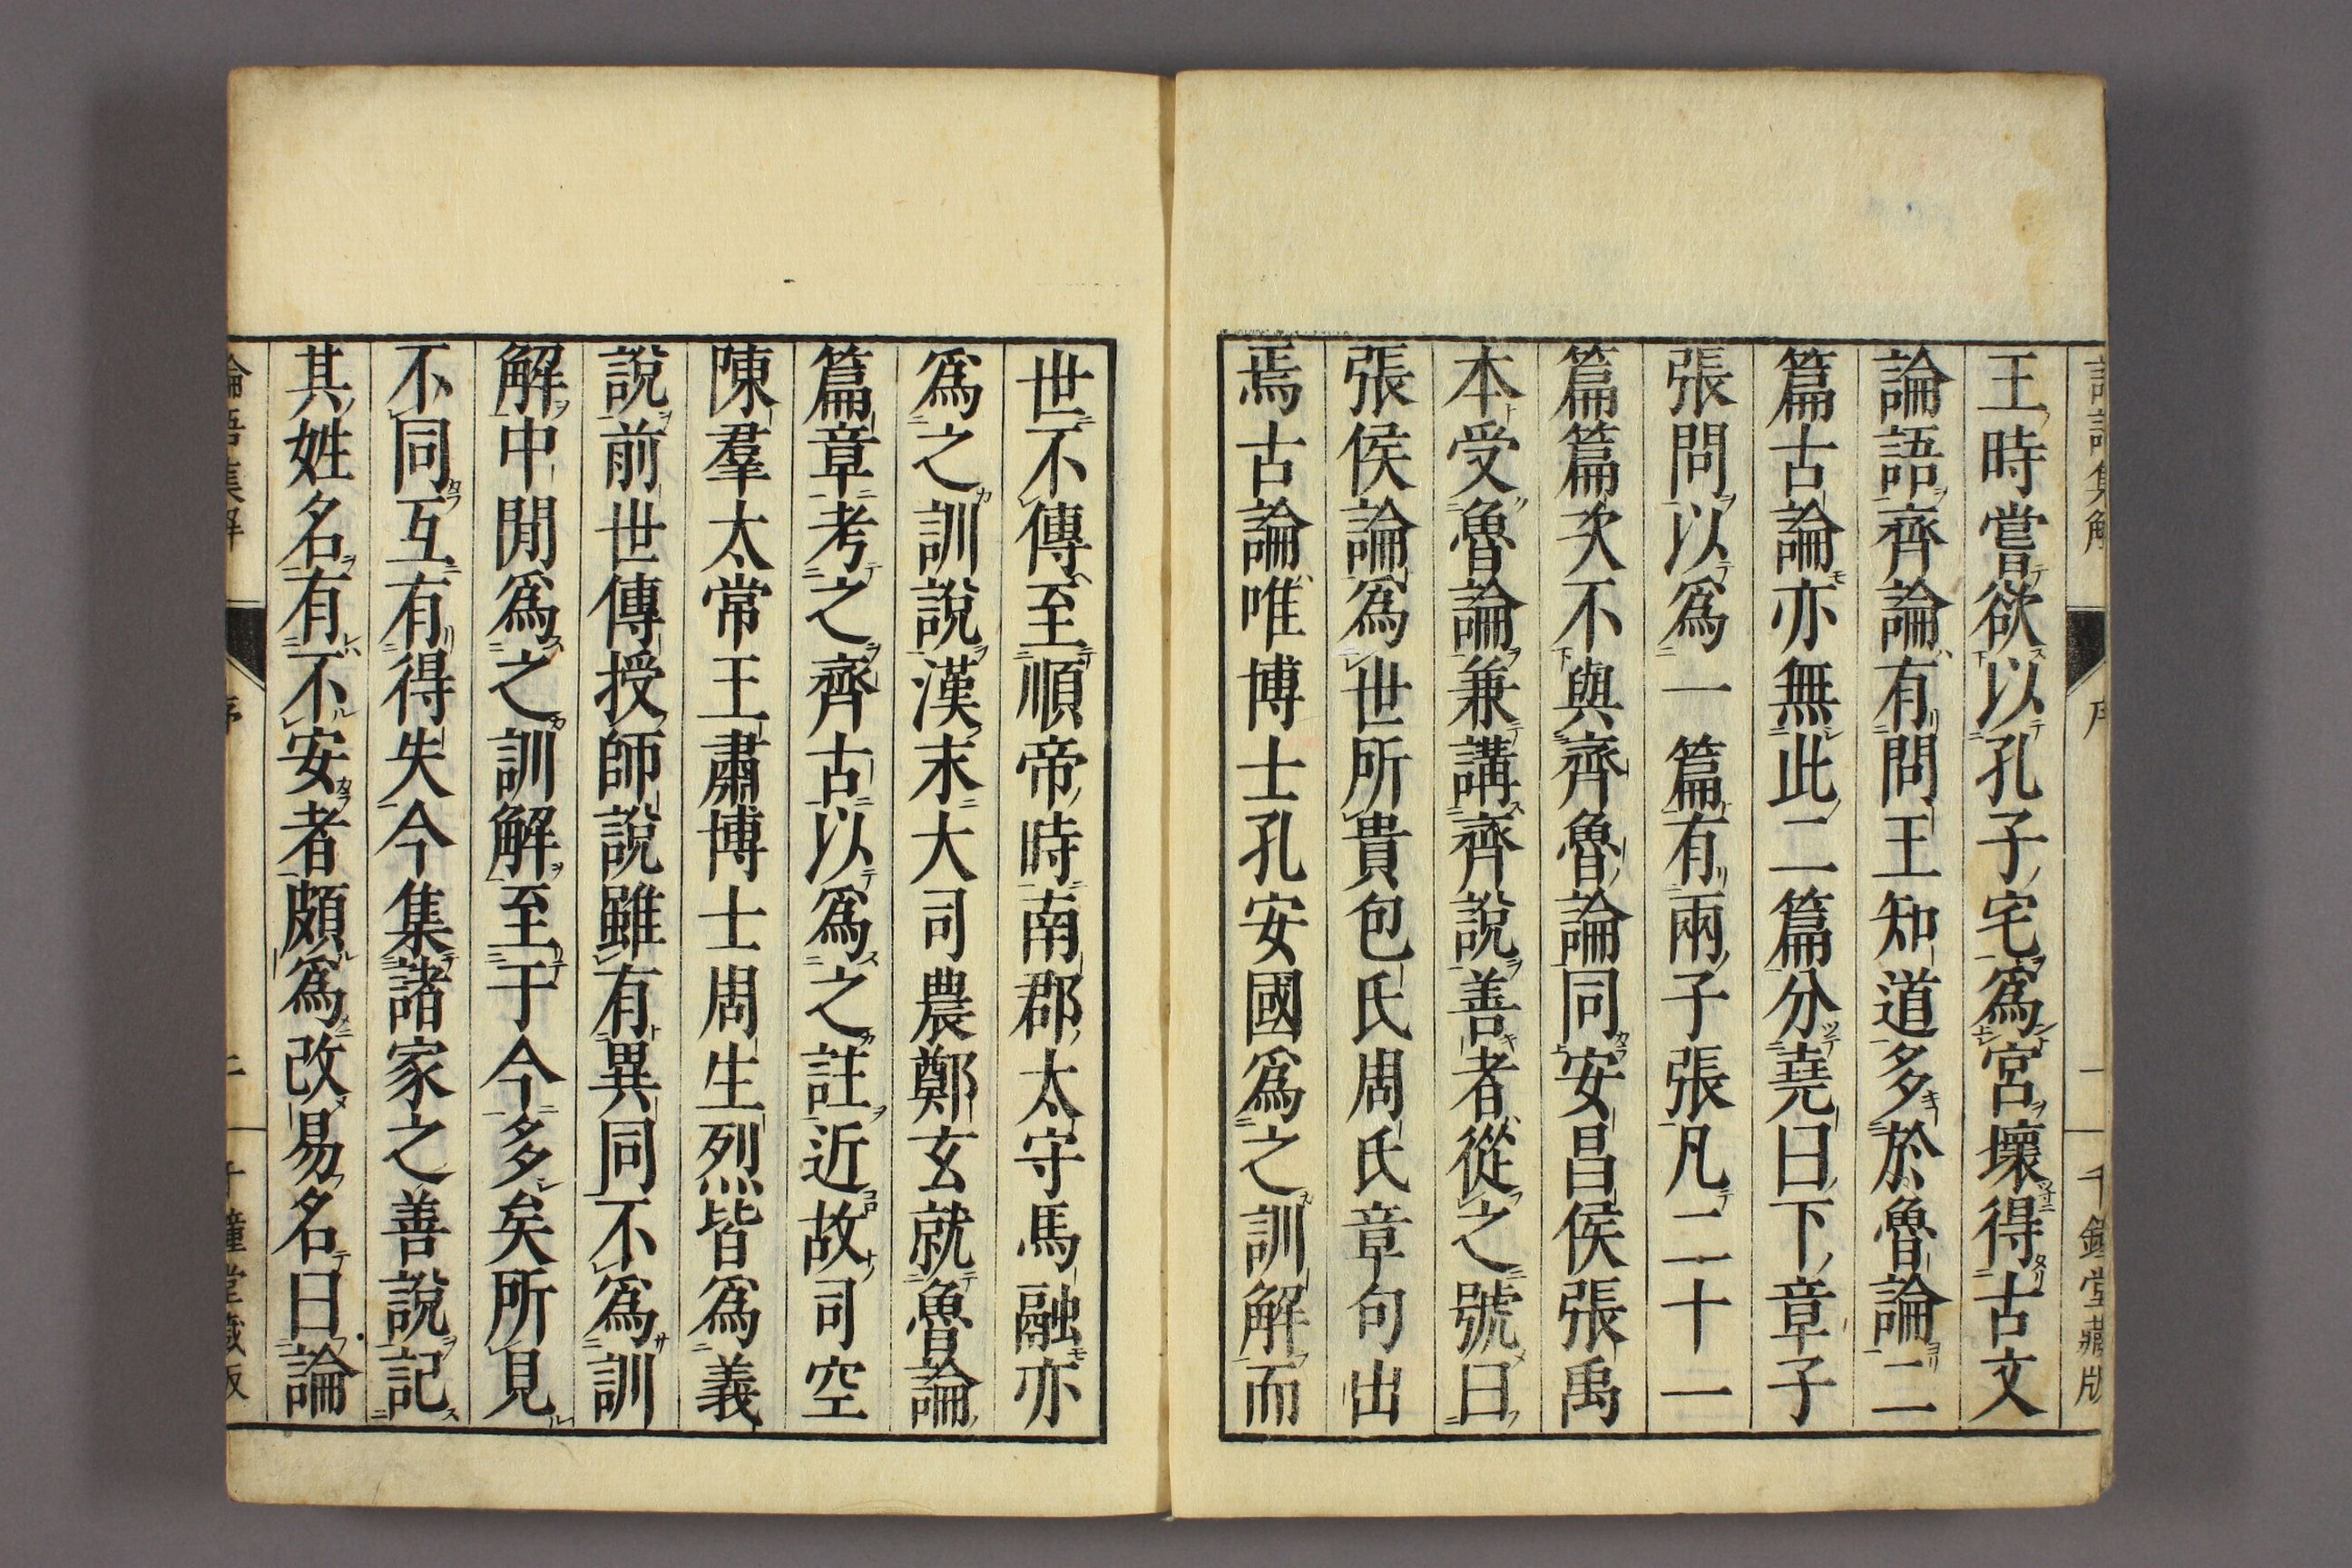 王時嘗欲以孔子宅爲宮壞得古文
論語齊論有問王知道多於魯論二
篇古論亦無此二篇分堯曰下章子
張問以爲一篇有兩子張凡二十一
篇篇次不與齊魯論同安昌侯張禹
本受魯論兼講齊說善者從之號曰
張侯論爲世所貴包氏周氏章句出
焉古論唯博士孔安國爲之訓解而
世不傳至順帝時南郡太守馬融亦
爲之訓說漢末大司農鄭玄就魯論
篇章考之齊古以爲之註近故司空
陳羣太常王肅博士周生烈皆爲義
說前世傳授師說雖有異同不爲訓
解中閒爲之訓解至于今多矣所見
不同互有得失今集諸家之善說記
其姓名有不安者頗爲改易名曰論
論語集解 序 二 千鍾堂藏版